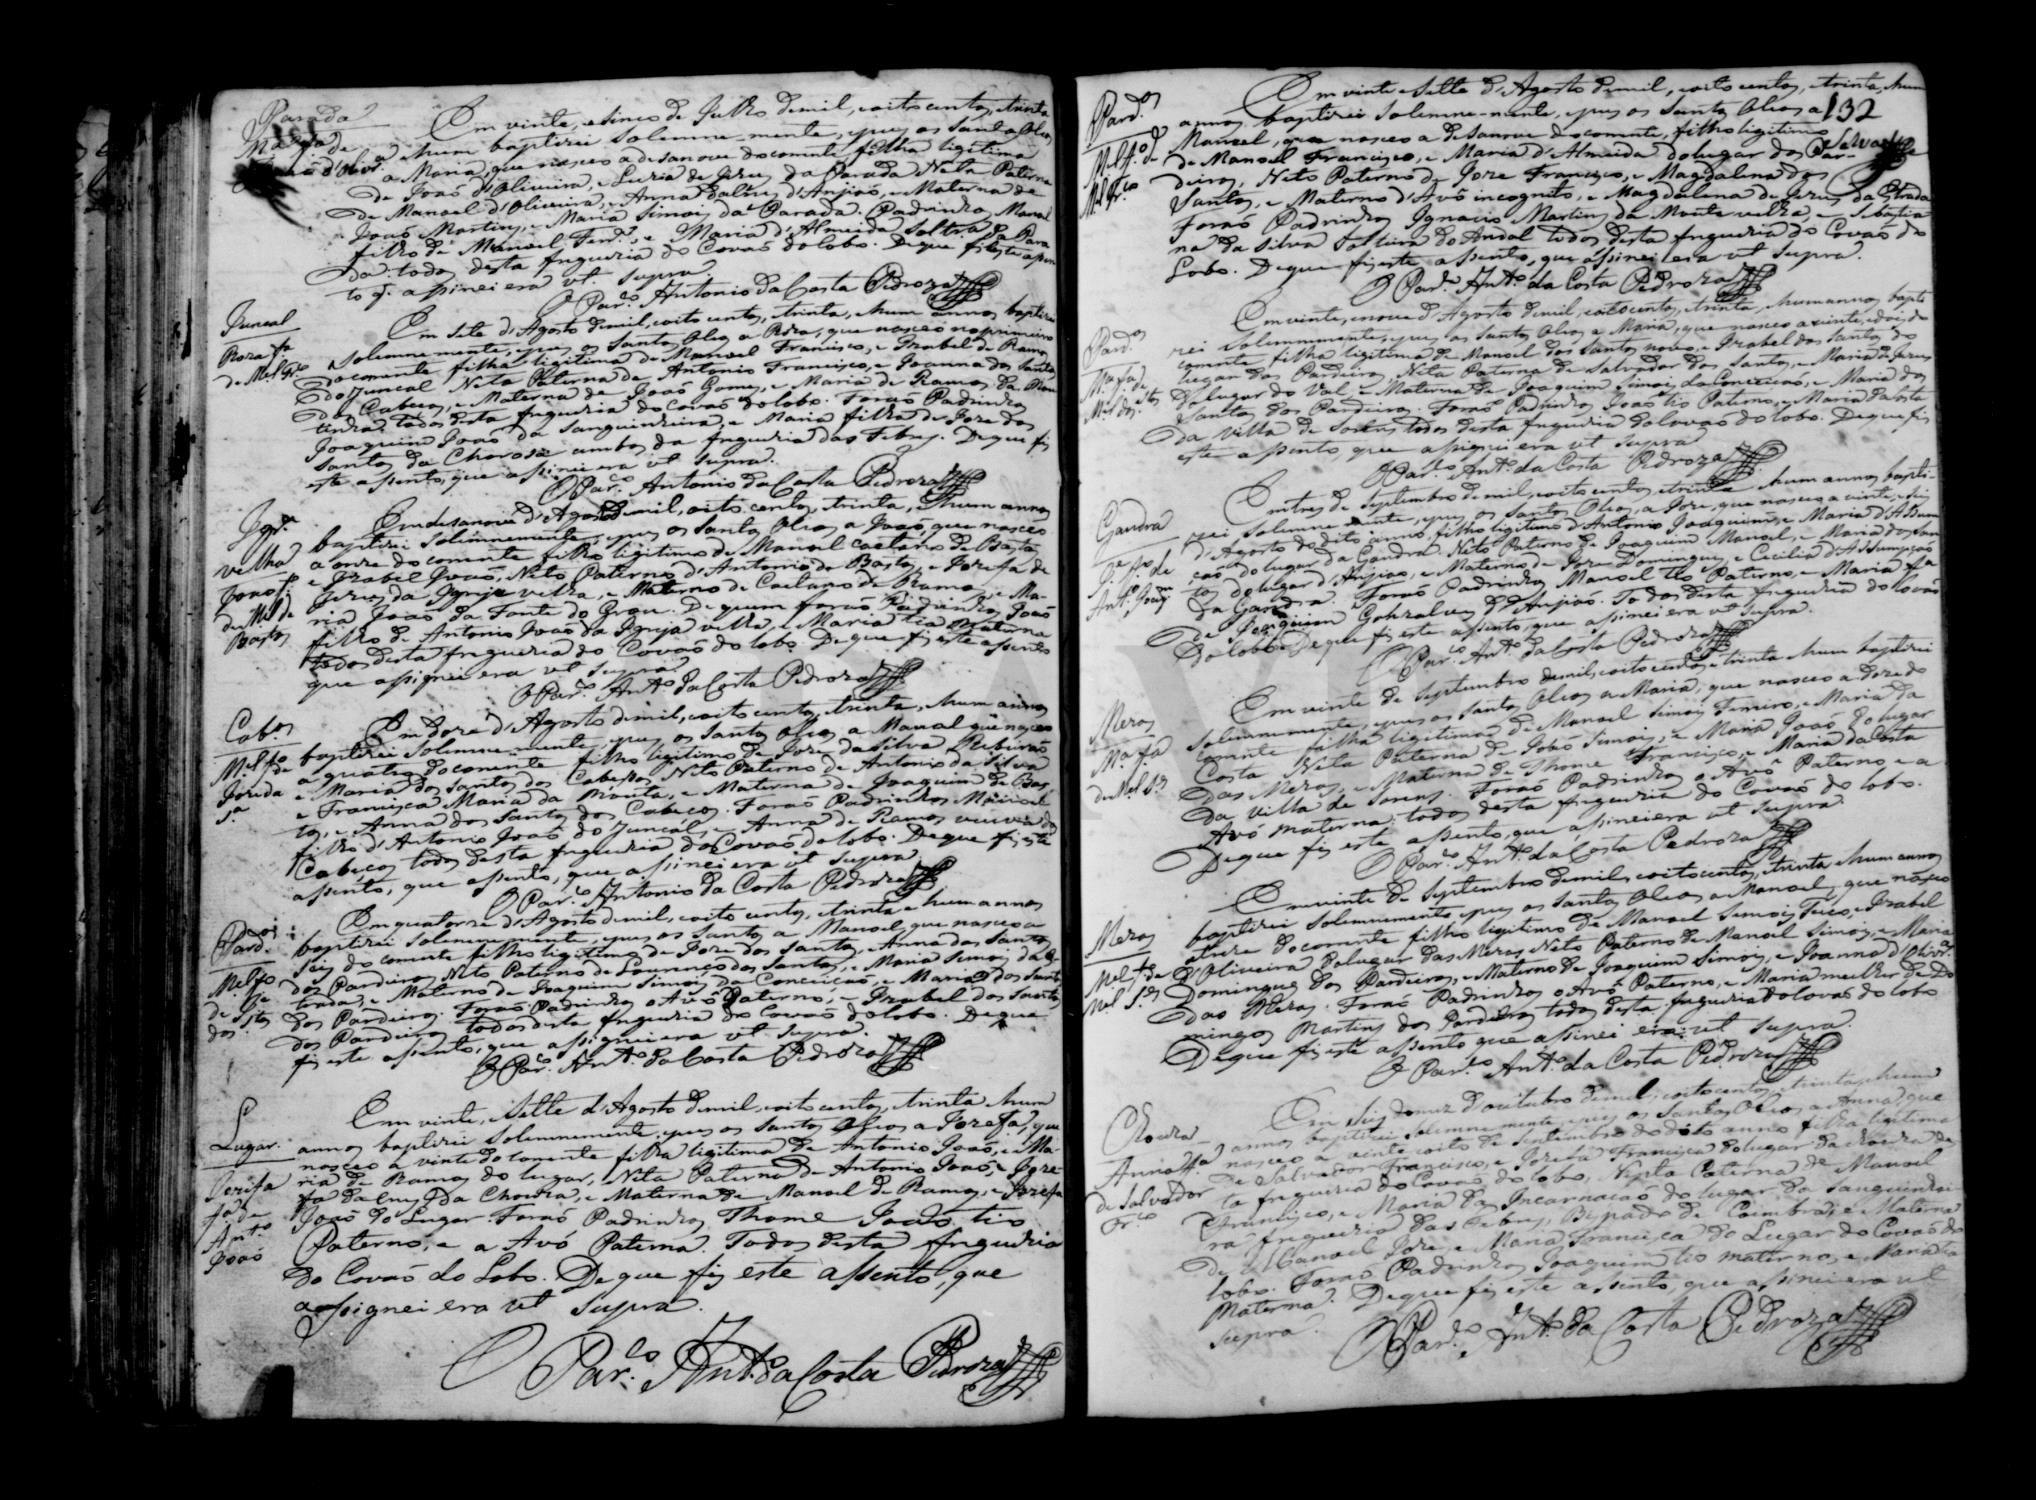 Parada
Maria fa de
João d'Olivr.a
Em vinte, e sinco de Julho de mil, e oito centos, e trinta
e hum baptizei solemne-mente, e pus os Santos Oleos
a Maria, que nasceo a desanove do corrente filha ligitima
de João d'Oliveira, e Luzia de Jezus da Parada Neta Paterna
de Manoel d'Oliveira, e Anna d'Anjião, e Materna de
João Martins, e Maria Simois da Parada. Padrinhos Manoel
filho de Manoel Fern.es, e Maria d'Almeida Solteira da Para
da. todos desta freguezia do Covão do Lobo. De que fis este assen
to q. assinei era ut supra.
O Par.co Antonio da Costa Pedroza
Juncal
Roza fa
de M.el Fr.co
Em sete d'Agosto de mil, e oito centos, e trinta, e hum annos baptizei
solemnemente, e pus os Santos Oleos a Roza, que nasceo no primeiro
do corrente filha ligitima de Manoel Francisco, e Izabel de Ramos
do Juncal Neta Paterna de Antonio Francisco, e Joanna dos Santos
dos Cabeços, e Materna de João Gomes, e Maria de Ramos da
todos desta freguezia do Covão do lobo. Forão Padrinhos
Joaquim João da Sanguinheira, e Maria filha de Joze dos
Santos da Choroza ambos da freguezia das Febres. De que fis
este assento, que assinei era ut supra.
O Par.co Antonio da Costa Pedroza
Igr.a
velha
João f.o
de M.el de
Bastos
Em desanove d'Agosto de mil, e oito centos, e trinta, e hum annos
baptizei solemnemente, e pus os Santos Oleos a João, que nasceo
a onze do corrente filho ligitimo de Manoel Caetano de Bastos
e Izabel João, Neto Paterno d'Antonio de Bastos, e Jozefa de
Jezus da Igreja velha, e Materno de Caetano de Ramos, e Ma-
ria João da Fonte do Grou. De quem forão Padrinhos João
filho de Antonio João da Igreja velha, e Maria tia Materna
todos desta freguezia do Covão do lobo. De que fis este assento
que assignei era ut supra.
O Par.co Ant.o da Costa Pedroza
Cab.os
M.el fo
de
Joze da
S.a
Em doze d'Agosto de mil, e oito centos, e trinta, e hum annos
baptizei solemne-mente, e pus os Santos Oleos a Manoel que nasceo
a quatro do corrente filho ligitimo de Joze da Silva Ribeirão
e Maria dos Santos dos Cabeços, Neto Paterno de Antonio da Silva
e Francisca Maria da Moita, e Materna de Joaquim de Bas
tos, e Anna dos Santos dos Cabeços. Forão Padrinhos Manoel
filho d'Antonio João do Juncal, e Anna de Ramos viuva dos
Cabeços, todos desta freguezia do Covão do lobo. De que fis este
assento, que assento, que assinei era ut supra.
O Par.co Antonio da Costa Pedroza
Pard.os
M.el fo
de
de J.e
dos S.tos
Em quatorze d'Agosto de mil, e oito centos, e trinta e hum annos
baptizei solemnemente, e pus os Santos a Manoel, que nasceo a
seis do corrente filho ligitimo de Joze dos Santos, e Anna dos Santos
dos Pardeiros, Neto Paterno de Lourenço dos Santos, e Maria Simois da Es
trada, e Materno de Joaquim Simois da Conceicão, e Maria dos Santos
dos Pardeiros. Forão Padrinhos o Avô Paterno, e Izabel dos Santos
dos Pardeiros todos desta freguezia do Covão do lobo. De que
fis este assento, que assignei era ut supra.
O Par.co Ant.o da Costa Pedroza
Lugar.
Jozefa
fa de
Ant.o
João
Em vinte, e sette d'Agosto de mil, e oito centos, e trinta e hum
annos baptizei solemnemente, e pus os Santos Oleos a Jozefa, que
nasceo a vinte do corrente filha ligitima de Antonio João, e Ma-
ria de Ramos do lugar, Neta Paterna de Antonio João, e Joze-
fa da Cruz da Choroza, e Materna de Manoel de Ramos, e Jozefa
João do Lugar. Forão Padrinhos, Thome João, tio
Paterno, e a Avó Paterna. Todos desta freguezia
do Covão do Lobo. De que fis este assento, que
assignei era ut supra.
O Par.co Ant.o da Costa Pedroza
132
Pard.os
M.el f.o de
M.el Fr.co
Em vinte e sette d'Agosto de mil, e oito centos, e trinta, e hum
annos baptizei solemne-mente, e pus os Santos Oleos a
Manoel, que nasceo a desanove do corrente, filho ligitimo
de Manoel Francisco, e Maria d'Almeida do lugar dos Par-
deiros, Neto Paterno de Joze Francisco, e Magdalena dos
Santos, e Materno d'Avô incognito, e Magdalena de Jezus da Estrada
Forão Padrinhos Ignacio Martins da Monte velha, e Sebastia
na da Silva Solteira do Andal todos desta freguezia do Covão do
Lobo. De que fis este assento, que assinei era ut supra.
O Par.co Ant.o da Costa Pedroza
Pard.os
M.a fa
de
M.el dos S.tos
Em vinte, e nove d'Agosto de mil, e oito centos, e trinta, e hum annos bapti
zei solemnemente, e pus os Santos Oleos a Maria, que nasceo a vinte, e dois do
corrente filha ligitima de Manoel dos Santos novo, e Izabel dos Santos do
lugar dos Pardeiros, Neta Paterna de Salvador dos Santos, e Maria de Jezus
do lugar do Val, e Materna de Joaquim Simois da Conceicão, e Maria dos
Santos dos Pardeiros. Forão Padrinhos João tio Paterno, e Maria da Costa
da Villa de Sorens todos desta freguezia do Covão do lobo. De que fis
este assento, que assignei era ut supra.
O Par.co Ant.o da Costa Pedroza
Gandra
J.e fo de
Ant.o Joaq.m
Em tres de Septembro de mil, e oito centos, e trinta e hum annos bapti-
zei solemne-mente, e pus os Santos Oleos, a Joze, que nasceo a vinte, e seis
d'Agosto do dito anno, filho ligitimo d'Antonio Joaquim, e Maria d'Assum
cão do lugar da Gandra. Neto Paterno de Joaquim Manoel, e Maria dos San
tos do lugar d'Anjião, e Materno de Joze Domingues, e Cecilia d'Assumpção
da Gandra. Forão Padrinhos Manoel tio Paterno, e Maria fa
de Joaquim Gonzalves d'Anjião. Todos desta freguezia do Covão
do lobo. De que fis este assento, que assinei era ut supra.
O Par.co Ant.o da Costa Pedroza
Mezas
M.a fa
de M.el S.es
Em vinte de Septembro de mil, e oito centos, e trinta e hum baptizei
solemnemente, e pus os Santos Oleos a Maria, que nasceo a doze do
corrente filha ligitima de Manoel Simois Ferreiro, e Maria da
Costa Neta Paterna de João Simois, e Maria João do lugar
das Mezas, e Materna de Thome Francisco, e Maria da Costa
da villa de Sorens. Forão Padrinhos o Avô Paterno e a
Avó materna: todos desta freguezia do Covão do lobo.
De que fis este assento, que assinei era ut supra.
O Par.co Ant.o da Costa Pedroza
Mezas
M.el fo de
M.el S.es
Em vinte de Septembro de mil, e oito centos, e trinta e hum annos
baptizei solemnemente, e pus os Santos Oleos a Manoel, que nasceo
a treze do corrente filho ligitimo de Manoel Simois Teixo, e Izabel
d'Oliveira do lugar das Mezas, Neto Paterno de Manoel Simois, e Maria
Domingues dos Pardeiros, e Materno de Joaquim Simois, e Joanna d'Olivr.a
das Mezas. Forão Padrinhos o Avô Paterno, e Maria mulher de Do
mingos Martins dos Pardeiros, todos desta freguezia do Covão do lobo
De que fis este assento que assinei era ut supra.
O Par.co Ant.o da Costa Pedroza
Choroza
Anna fa
de Salvador
Fr.co
Em seis do mez d'outubro de mil, e oito centos, e trinta, e hum
annos baptizei solemne mente, e pus os Santos Oleos a Anna, que
nasceo a vinte, e oito de Septembro do dito anno filha ligitima
de Salvador Francisco, e Jozefa Francisca do lugar da Choroza des
ta freguezia do Covão do lobo, Nepta Paterna de Manoel
Francisco, e Maria da Incarnacão do lugar da Sanguinhei
ra freguezia das Febres, Bispado de Coimbra, e Materna
de Manoel Joze, e Maria Francisca do Lugar do Covão do
lobo. Forão Padrinhos Joaquim tio materno, e Maria tia
Materna. De que fis este assento, que assinei era ut
supra.
O Par.co Ant.o da Costa Pedroza